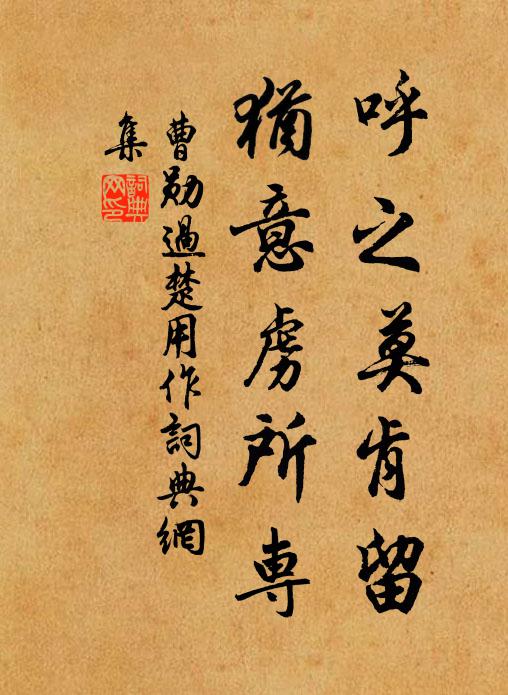 呼之莫肯留
猶意虜所専
曹勛過楚用作詞典網
集
詞典网印